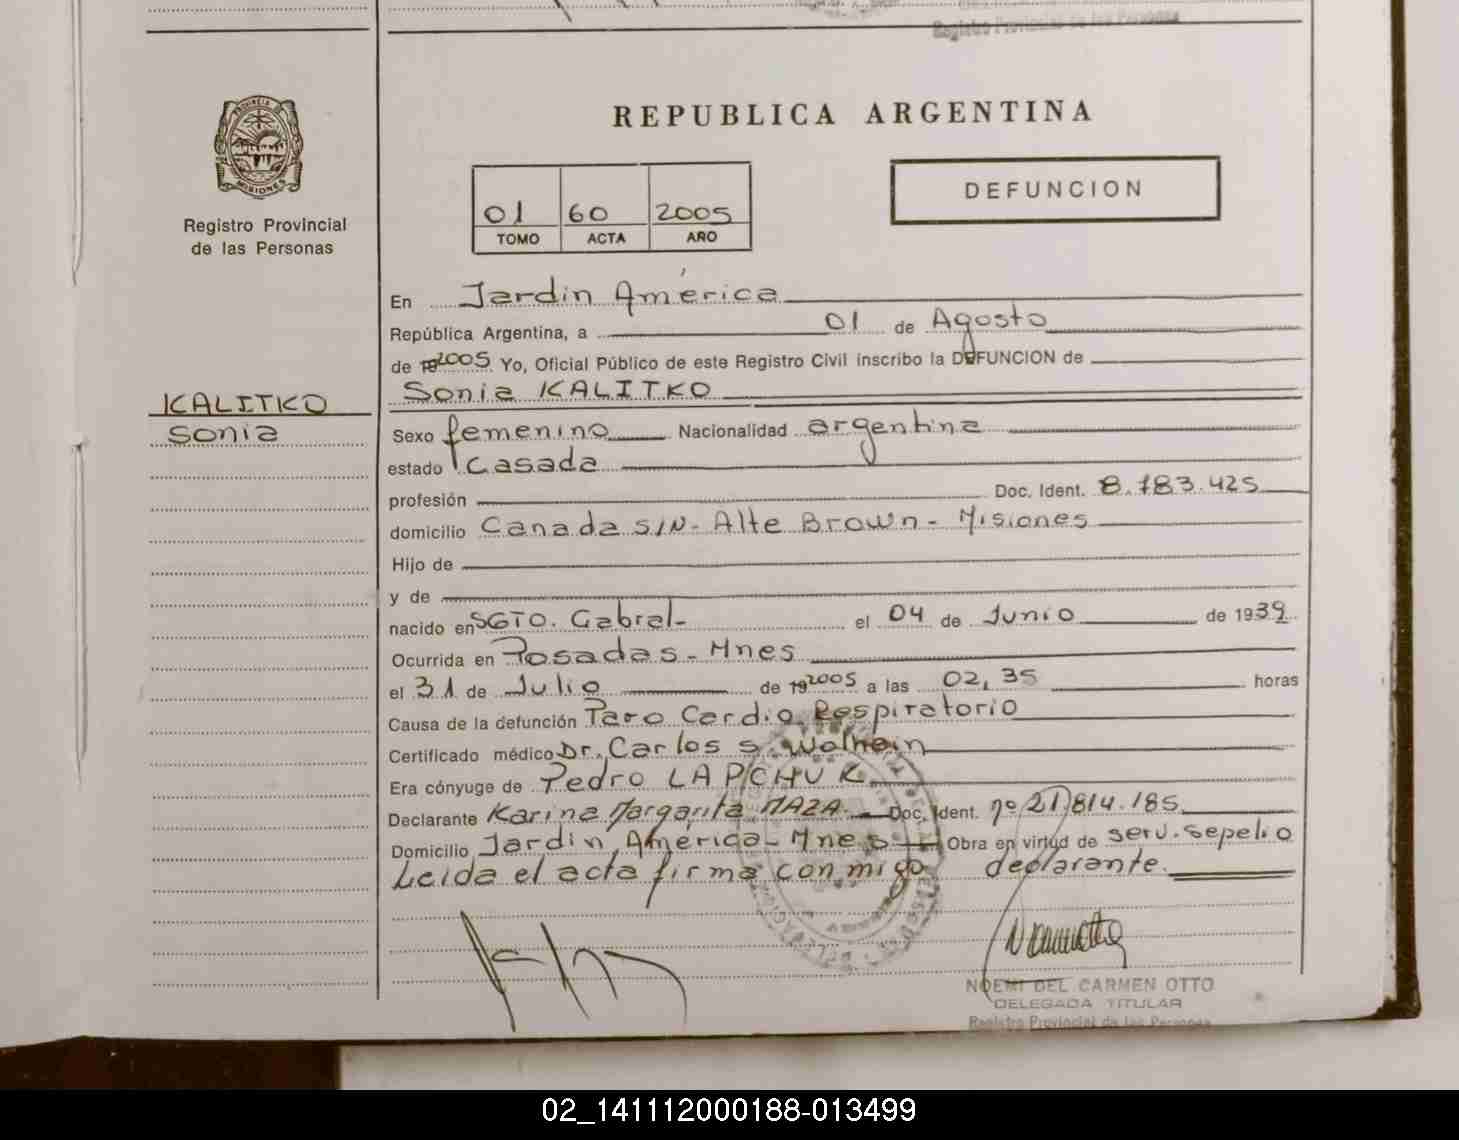 Registro Provincial de las Personas
REPUBLICA ARGENTINA
PROVINCIA DE
MISIONES
Registro Provincial
de las Personas
01 60 2005
TOMO ACTA AÑO
DEFUNCION
En Jardín América
República Argentina, a 01 de Agosto
de 19 2005 Yo, Oficial Público de este Registro Civil inscribo la DEFUNCION de
Sonia KALITKO
KALITKO
Sonia
Sexo femenino Nacionalidad argentina
estado casada
profesión Doc. Ident. 8.783.425
domicilio Canada S/N- Alte Brown- Misiones
Hijo de
y de
nacido en SGTO. Cabral- el 04 de Junio de 1939
Ocurrida en Posadas- Mnes
el 31 de Julio de 19 2005 a las 02,35 horas
Causa de la defunción Paro Cardio Respiratorio
Certificado médico Dr. Carlos S. Walhein
Era cónyuge de Pedro LAPCHUK.
Declarante Karina Margarita MAZA- Doc. Ident. nº 21)814.185
Domicilio Jardín América- Mnes Obra en virtud de serv. sepelio
Leida el acta firma conmigo declarante.
NOEMI DEL CARMEN OTTO
DELEGADA TITULAR
Registro Provincial de las Personas
02_141112000188-013499